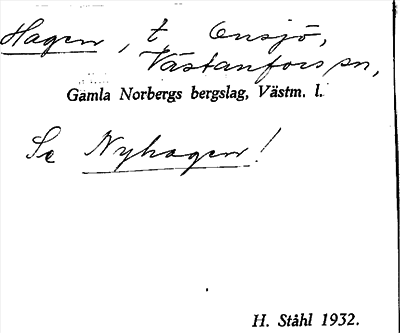 Hagen, t. Onsjö,
Västanfors sn,
Gamla Norbergs bergslag, Västm. l.
Se Nyhagen!
H. Ståhl 1932.